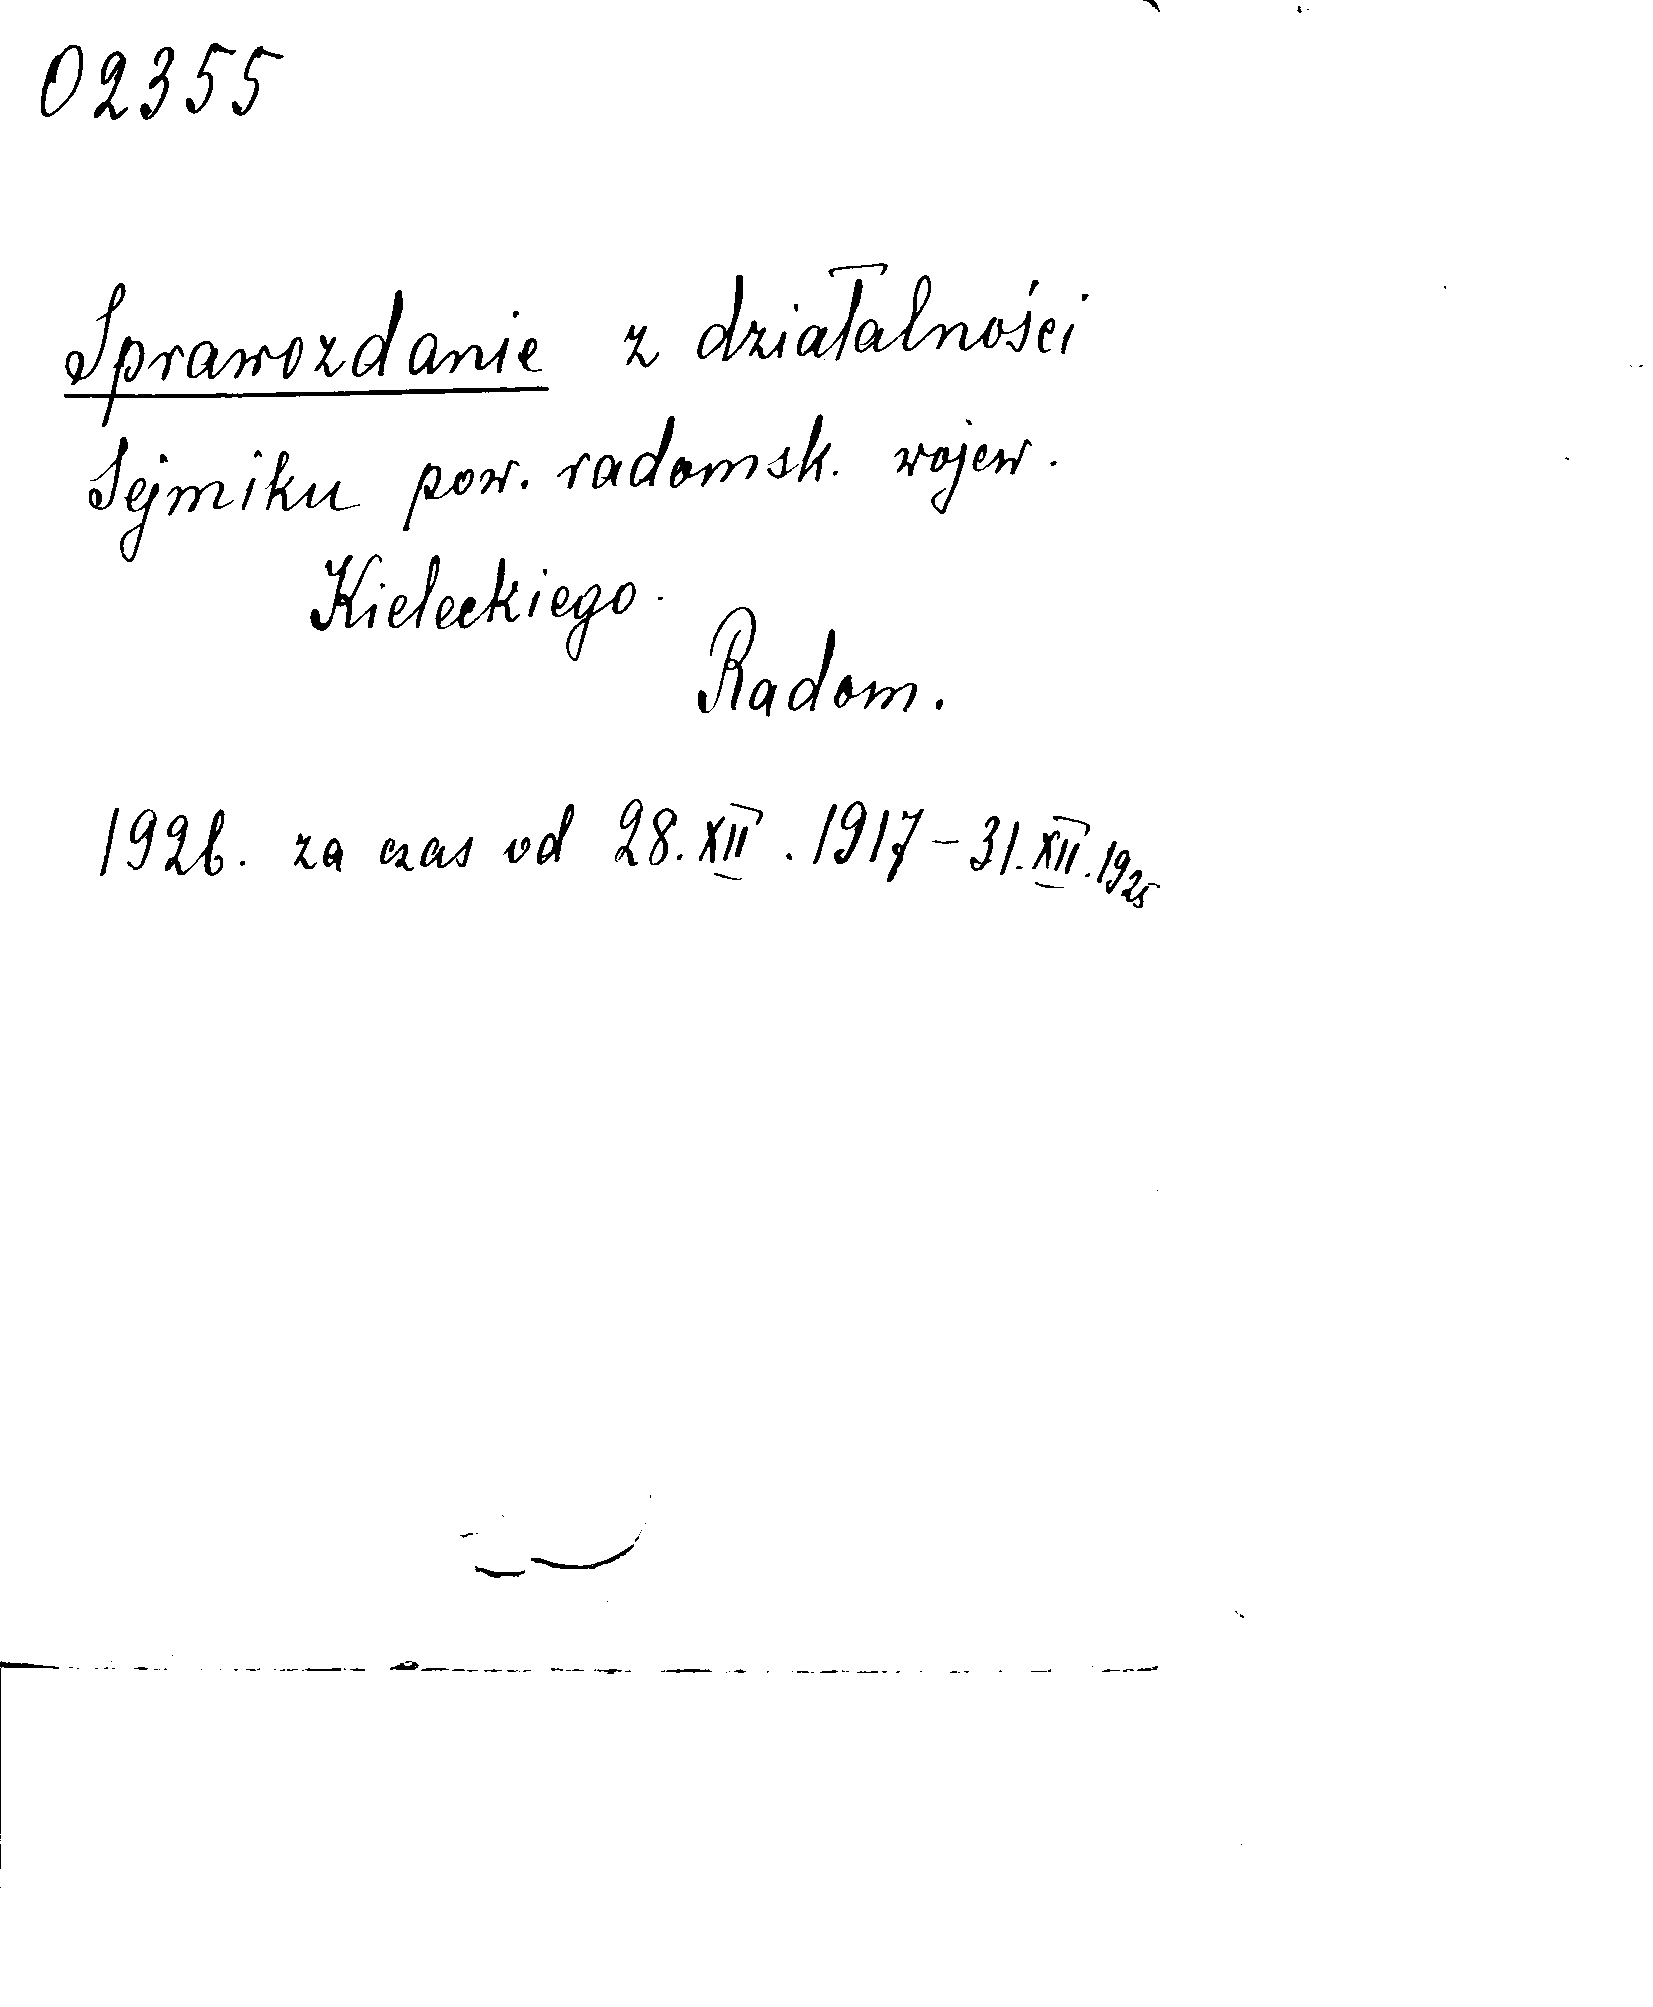 02355
Sprawozdanie z działalności
Sejmiku pow. radomsk. wojew.
Kieleckiego.
Radom.
1926. za czas od 28.XII.1917-31.XII.1925